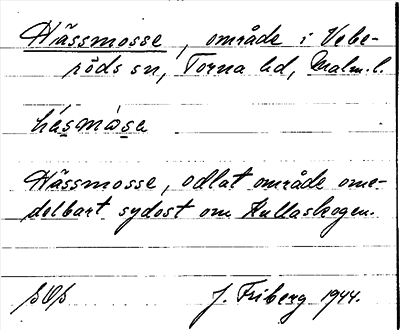 Hässmosse, område i Vebe-
röds sn, Torna hd, Malm.l.
hásmòsa
Hässmosse, odlat område ome-
delbart sydost om Kullaskogen.
J. Friberg 1944.